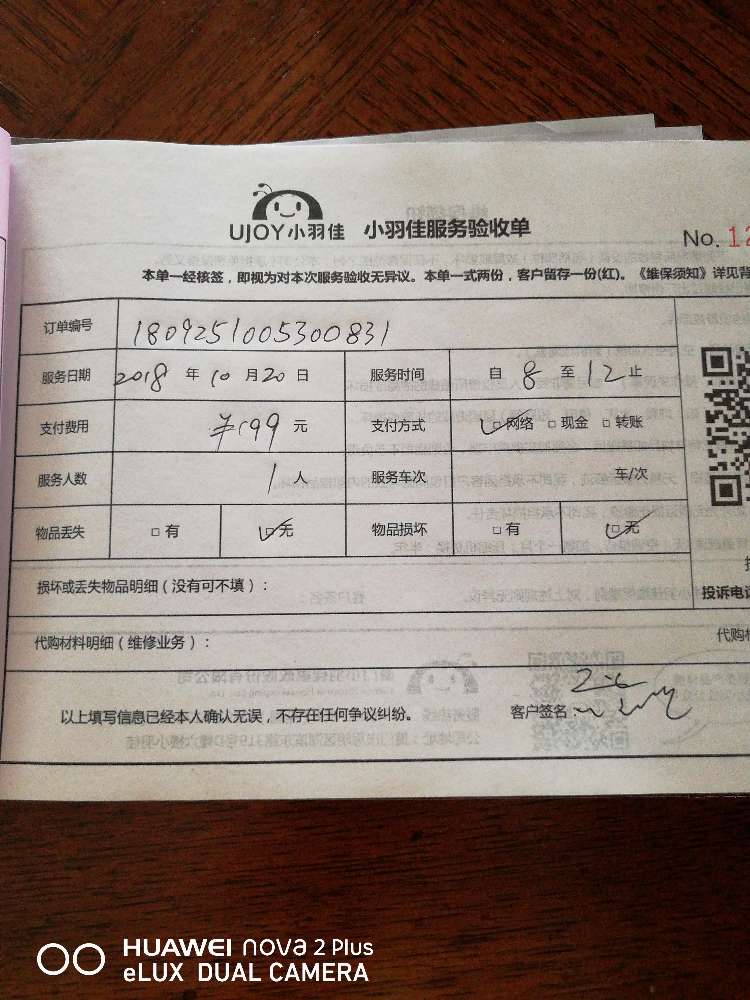 UJOY小羽佳 小羽佳服务验收单
No. 12
本单一经核签，即视为对本次服务验收无异议。本单一式两份，客户留存一份(红)。《维保须知》详见背
订单编号 1809251005300831
服务日期 2018 年 10 月 20 日 服务时间 自 8 至 12 止
支付费用 ¥199 元 支付方式 网络 现金 转账
服务人数 1 人 服务车次 车/次
物品丢失 有 无 物品损坏 有 无
损坏或丢失物品明细（没有可不填）：
投诉电话
代购材料明细（维修业务）：
代购材
以上填写信息已经本人确认无误，不存在任何争议纠纷。 客户签名：
HUAWEI nova 2 Plus
eLUX DUAL CAMERA